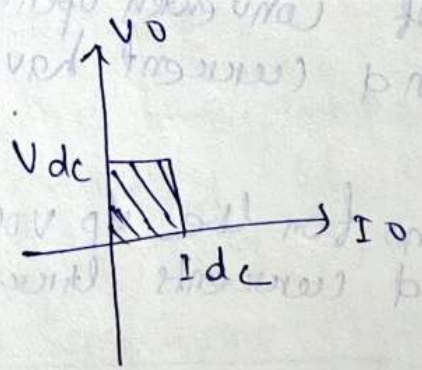 V0
Vdc
I0
Idc